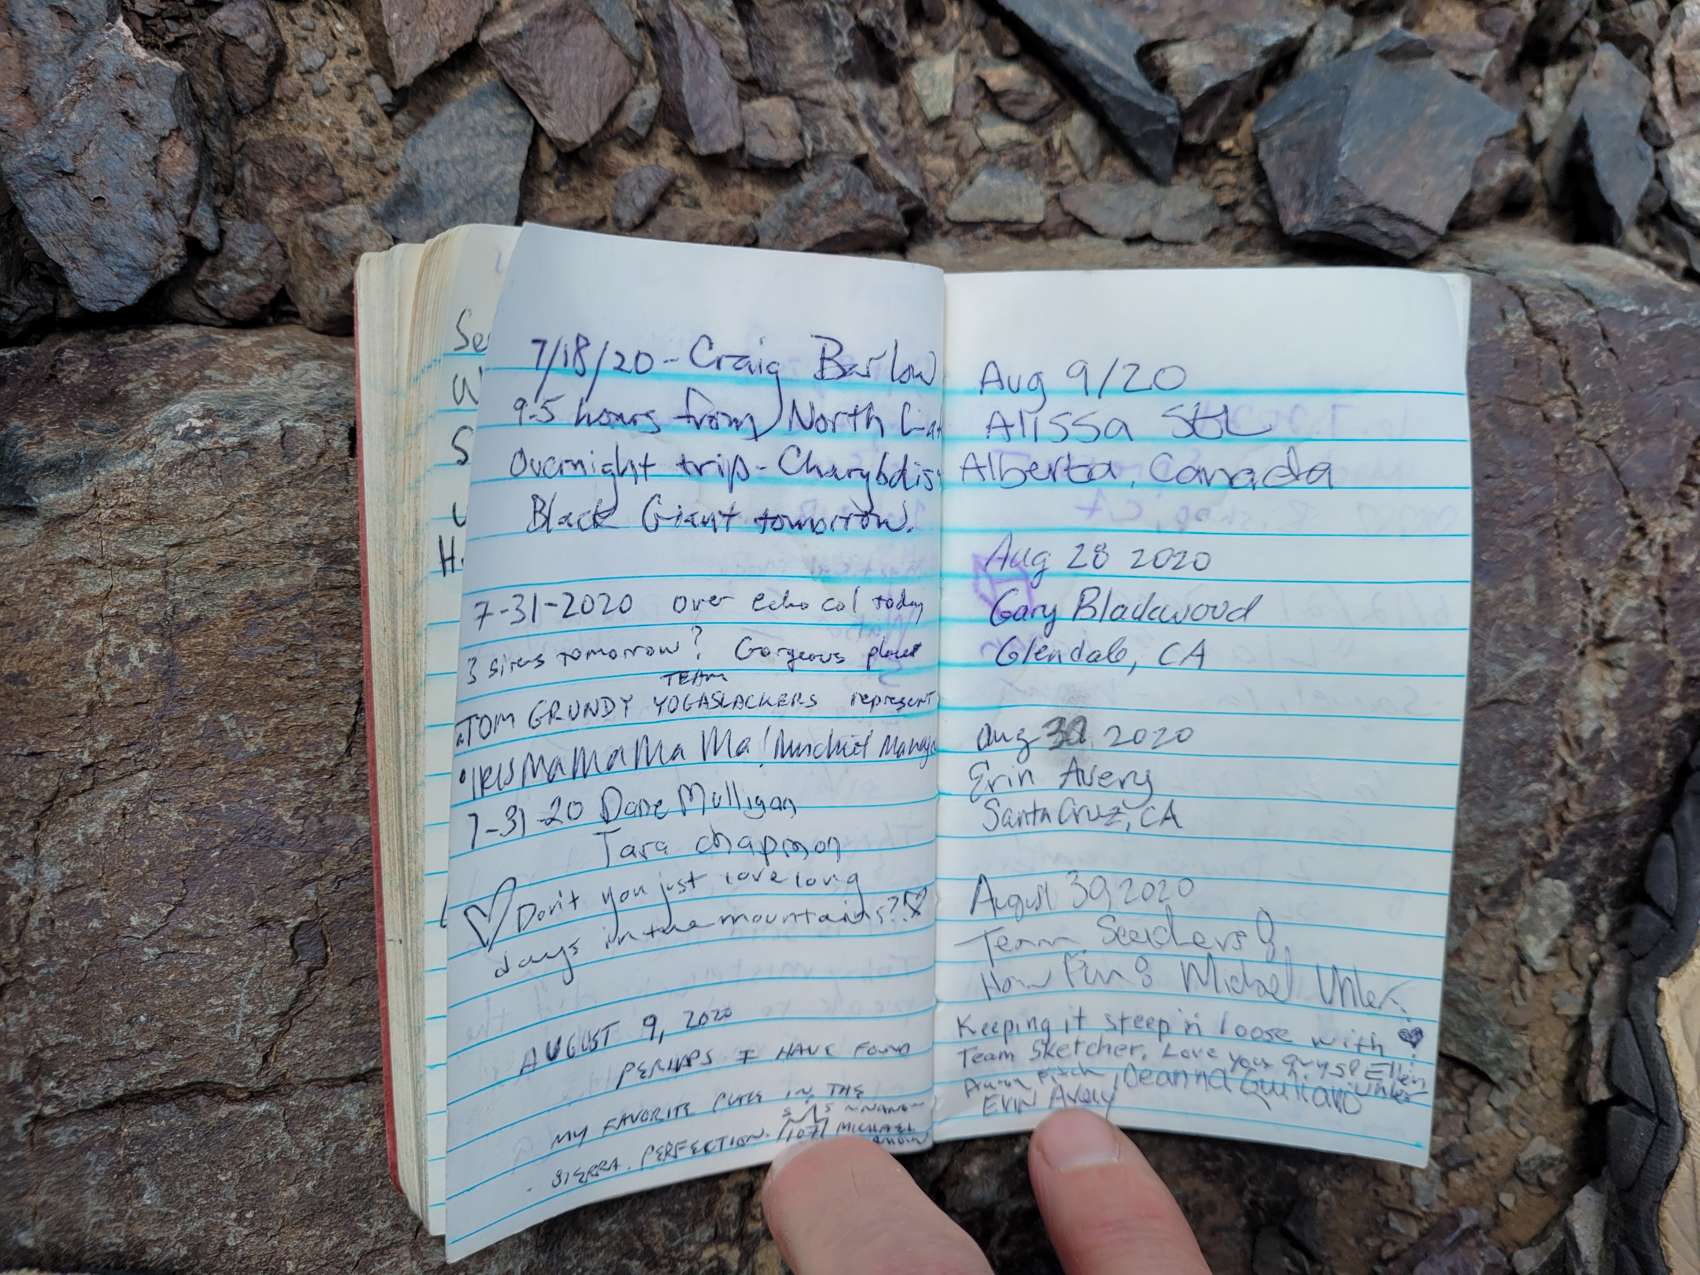 7/18/20 - Craig Barlow
9.5 hours from North
Overnight trip - Charybdis
Black Giant tomorrow.
7-31-2020 over echo col today
3 sirens tomorrow? Gorgeous
TEAM
TOM GRUNDY YOGASLACKERS represent
IRIS MaMaMa Ma!
7-31-20 Dane Mulligan
Tara Chapman
Don't you just love long
days in the mountains?!
AUGUST 9, 2020
PERHAPS I HAVE FOUND
MY FAVORITE PLACE IN THE
SIERRA. PERFECTION.
MICHAEL
Se
W
S
H
Aug 9/20
Alissa
Alberta, Canada
Aug 28 2020
Gary Blackwood
Glendale, CA
Aug 30, 2020
Erin Avery
Santa Cruz, CA
August 30, 2020
Team
Michael Uhler.
Keeping it steep'n loose with
Team Sketcher. Love you guys! Ellen
Uhler
Anna Deanna Giuliano
Erin Avery